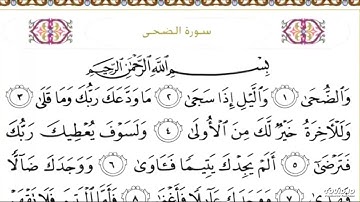 سورة الضحى
بِسْمِ اللَّهِ الرَّحْمَٰنِ الرَّحِيمِ
وَالضُّحَىٰ ١ وَالَّيْلِ إِذَا سَجَىٰ ٢ مَا وَدَّعَكَ رَبُّكَ وَمَا قَلَىٰ ٣
وَلَلْآخِرَةُ خَيْرٌ لَّكَ مِنَ الْأُولَىٰ ٤ وَلَسَوْفَ يُعْطِيكَ رَبُّكَ
فَتَرْضَىٰ ٥ أَلَمْ يَجِدْكَ يَتِيمًا فَـَٔاوَىٰ ٦ وَوَجَدَكَ ضَآلًّا
فَهَدَىٰ ٧ وَوَجَدَكَ عَآئِلًا فَأَغْنَىٰ ٨ فَأَمَّا الْيَتِيمَ فَلَا تَقْهَرْ